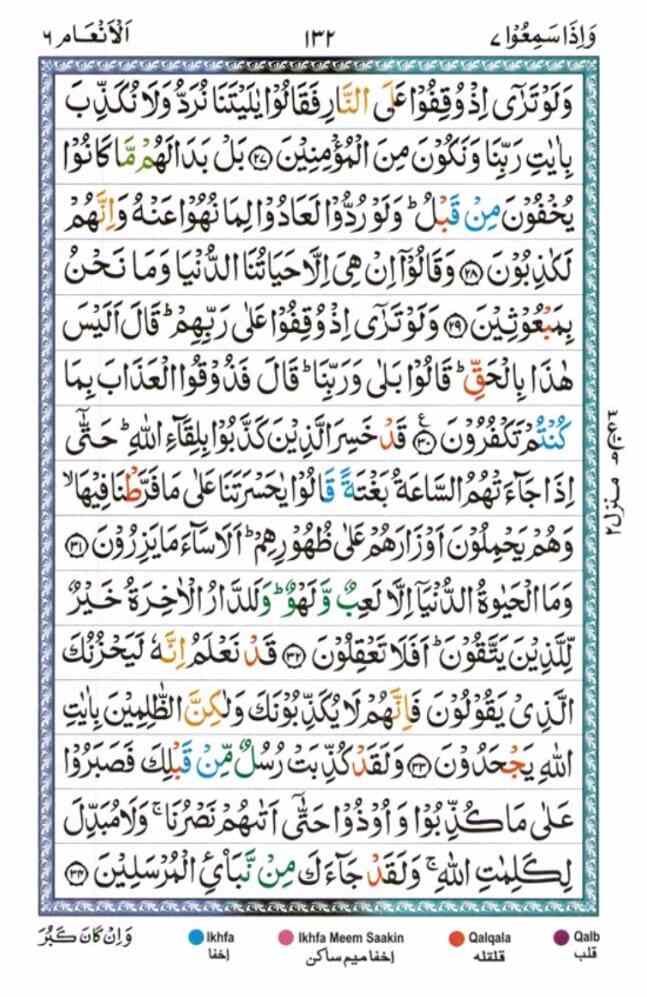 وَاِذَا سَمِعُوۡا ٧ ١٣٢ اَلۡاَنۡعَام ٦
وَلَوۡ تَرٰٓى اِذۡ وُقِفُوۡا عَلَى النَّارِ فَقَالُوۡا يٰلَيۡتَنَا نُرَدُّ وَلَا نُكَذِّبَ
بِاٰيٰتِ رَبِّنَا وَنَكُوۡنَ مِنَ الۡمُؤۡمِنِيۡنَ ﴿٢٧﴾ بَلۡ بَدَا لَهُمۡ مَّا كَانُوۡا
يُخۡفُوۡنَ مِنۡ قَبۡلُؕ وَلَوۡ رُدُّوۡا لَعَادُوۡا لِمَا نُهُوۡا عَنۡهُ وَاِنَّهُمۡ
لَكٰذِبُوۡنَ ﴿٢٨﴾ وَقَالُوۡۤا اِنۡ هِىَ اِلَّا حَيَاتُنَا الدُّنۡيَا وَمَا نَحۡنُ
بِمَبۡعُوۡثِيۡنَ ﴿٢٩﴾ وَلَوۡ تَرٰٓى اِذۡ وُقِفُوۡا عَلٰى رَبِّهِمۡؕ قَالَ اَلَيۡسَ
هٰذَا بِالۡحَقِّؕ قَالُوۡا بَلٰى وَرَبِّنَاؕ قَالَ فَذُوۡقُوا الۡعَذَابَ بِمَا
كُنۡتُمۡ تَكۡفُرُوۡنَ ﴿٣٠﴾ ع قَدۡ خَسِرَ الَّذِيۡنَ كَذَّبُوۡا بِلِقَآءِ اللّٰهِؕ حَتّٰٓى
اِذَا جَآءَتۡهُمُ السَّاعَةُ بَغۡتَةً قَالُوۡا يٰحَسۡرَتَنَا عَلٰى مَا فَرَّطۡنَا فِيۡهَاۙ
وَهُمۡ يَحۡمِلُوۡنَ اَوۡزَارَهُمۡ عَلٰى ظُهُوۡرِهِمۡؕ اَلَا سَآءَ مَا يَزِرُوۡنَ ﴿٣١﴾
وَمَا الۡحَيٰوةُ الدُّنۡيَاۤ اِلَّا لَعِبٌ وَّلَهۡوٌؕ وَلَلدَّارُ الۡاٰخِرَةُ خَيۡرٌ
لِّلَّذِيۡنَ يَتَّقُوۡنَؕ اَفَلَا تَعۡقِلُوۡنَ ﴿٣٢﴾ قَدۡ نَعۡلَمُ اِنَّهٗ لَيَحۡزُنُكَ
الَّذِىۡ يَقُوۡلُوۡنَ فَاِنَّهُمۡ لَا يُكَذِّبُوۡنَكَ وَلٰكِنَّ الظّٰلِمِيۡنَ بِاٰيٰتِ
اللّٰهِ يَجۡحَدُوۡنَ ﴿٣٣﴾ وَلَقَدۡ كُذِّبَتۡ رُسُلٌ مِّنۡ قَبۡلِكَ فَصَبَرُوۡا
عَلٰى مَا كُذِّبُوۡا وَاُوۡذُوۡا حَتّٰٓى اَتٰٮهُمۡ نَصۡرُنَاۚ وَلَا مُبَدِّلَ
لِكَلِمٰتِ اللّٰهِۚ وَلَقَدۡ جَآءَكَ مِنۡ نَّبَاِى الۡمُرۡسَلِيۡنَ ﴿٣٤﴾
منزل ٢
وَاِنۡ كَانَ كَبُرَ
Ikhfa اخفا
Ikhfa Meem Saakin اخفا میم ساکن
Qalqala قلقله
Qalb قلب